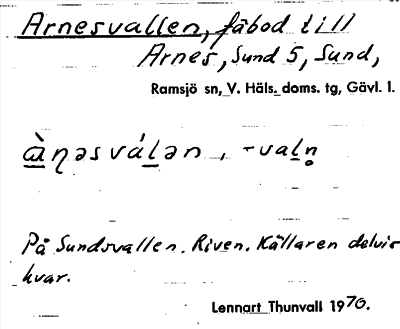 Arnesvallen, fäbod till
Arnes, Sund 5, Sund,
Ramsjö sn, V. Häls. doms. tg, Gävl. l.
à̱ɳəsvá́ḻən, -vaḻn̥
På Sundsvallen. Riven. Källaren delvis
kvar.
Lennart Thunvall 1970.